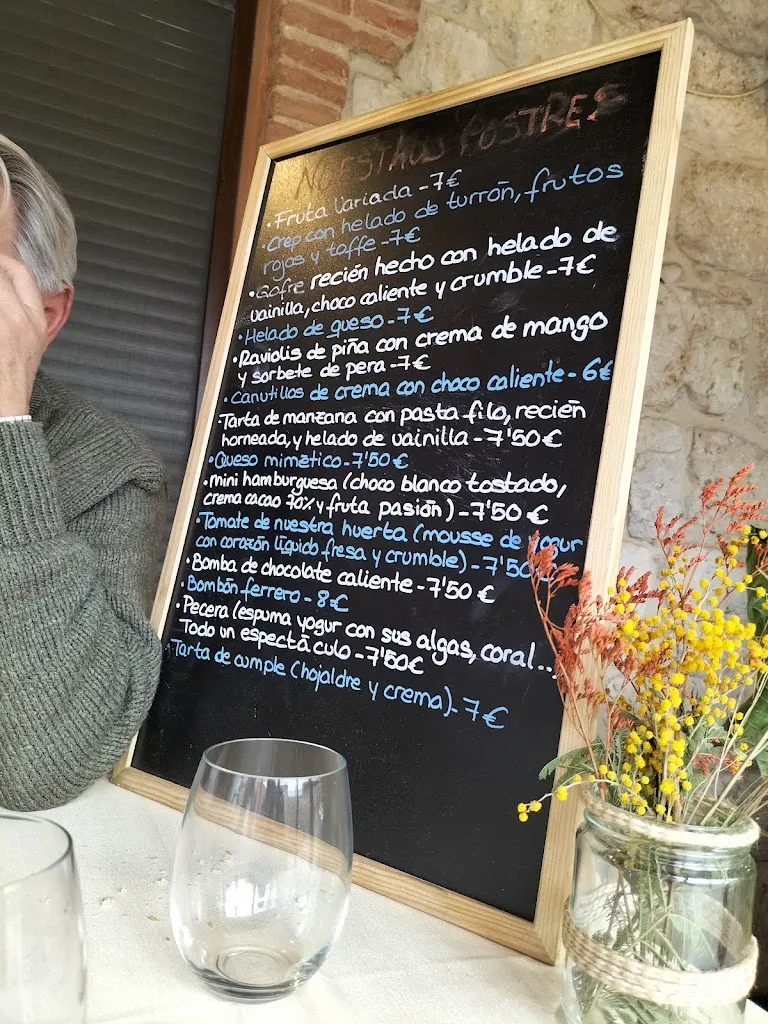 NUESTROS POSTRES
• Fruta Variada - 7€
• Crep con helado de turrón, frutos
rojos y toffe - 7€
• Gofre recién hecho con helado de
vainilla, choco caliente y crumble - 7€
• Helado de queso - 7€
• Raviolis de piña con crema de mango
y sorbete de pera - 7€
• Canutillos de crema con choco caliente - 6€
• Tarta de manzana con pasta filo, recién
horneada, y helado de vainilla - 7'50€
• Queso mimético - 7'50€
• mini hamburguesa (choco blanco tostado,
crema cacao 70% y fruta pasión) - 7'50€
• Tomate de nuestra huerta (mousse de yogur
con corazón líquido fresa y crumble) - 7'50€
• Bomba de chocolate caliente - 7'50€
• Bombón ferrero - 8€
• Pecera (espuma yogur con sus algas, coral...,
Todo un espectáculo - 7'50€
• Tarta de cumple (hojaldre y crema) - 7€